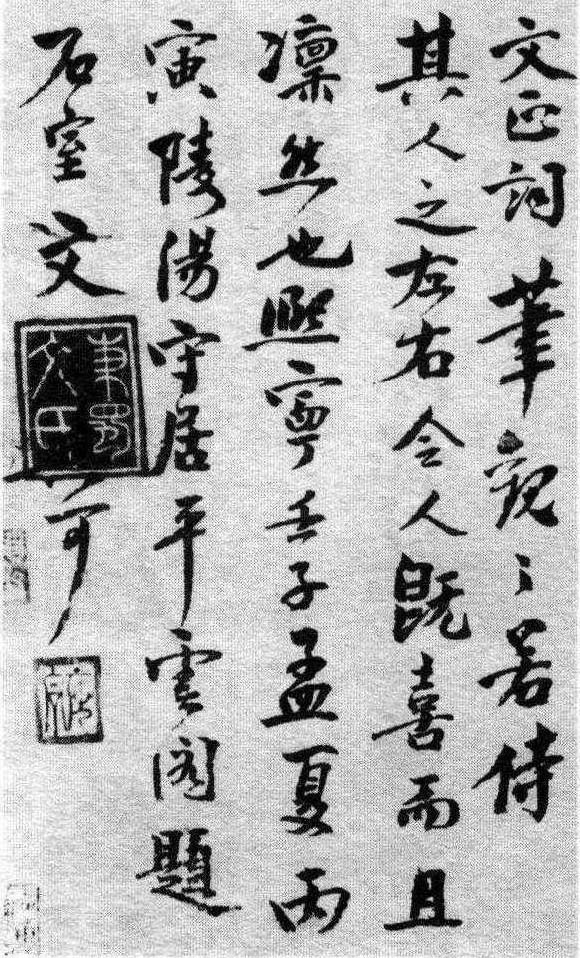 文正詞筆觀之若侍
其人之左右令人既喜而且
凛然也熙寧壬子孟夏丙
寅陵陽守居平雲閣題
石室文可
東蜀文氏